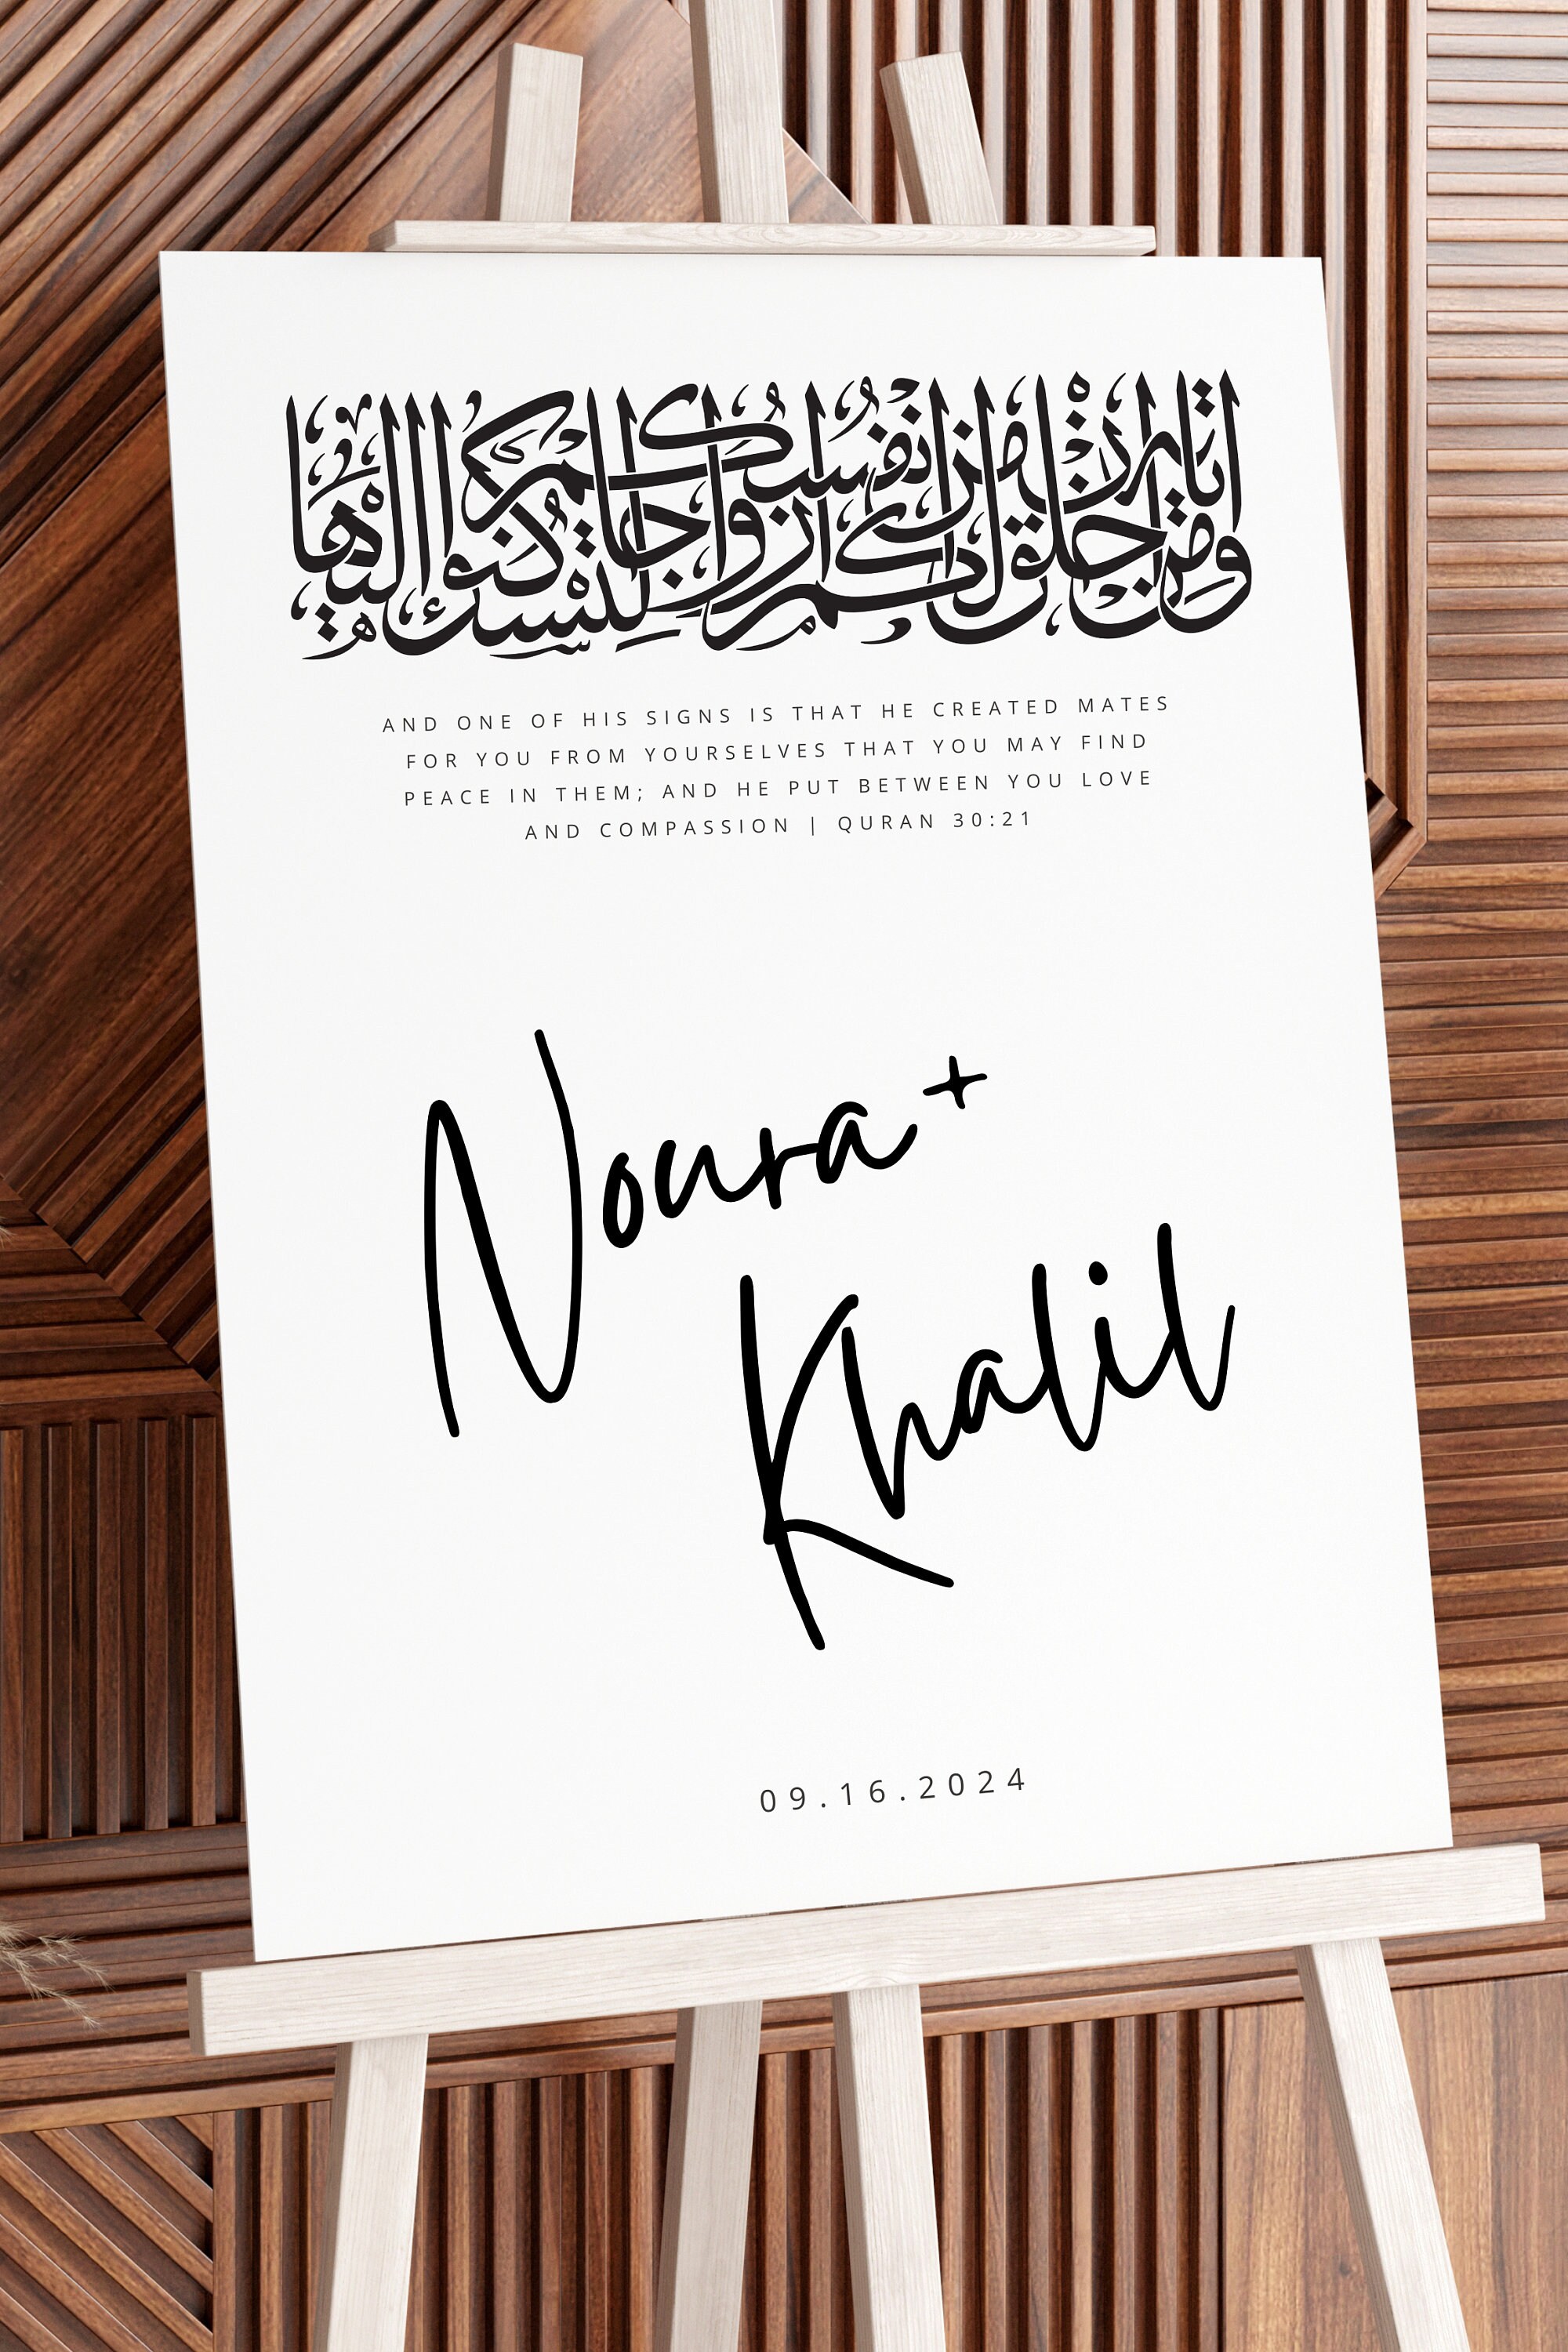 ومن آياته أن خلق لكم من أنفسكم أزواجا لتسكنوا إليها
AND ONE OF HIS SIGNS IS THAT HE CREATED MATES
FOR YOU FROM YOURSELVES THAT YOU MAY FIND
PEACE IN THEM; AND HE PUT BETWEEN YOU LOVE
AND COMPASSION | QURAN 30:21
Noura +
Khalil
09.16.2024